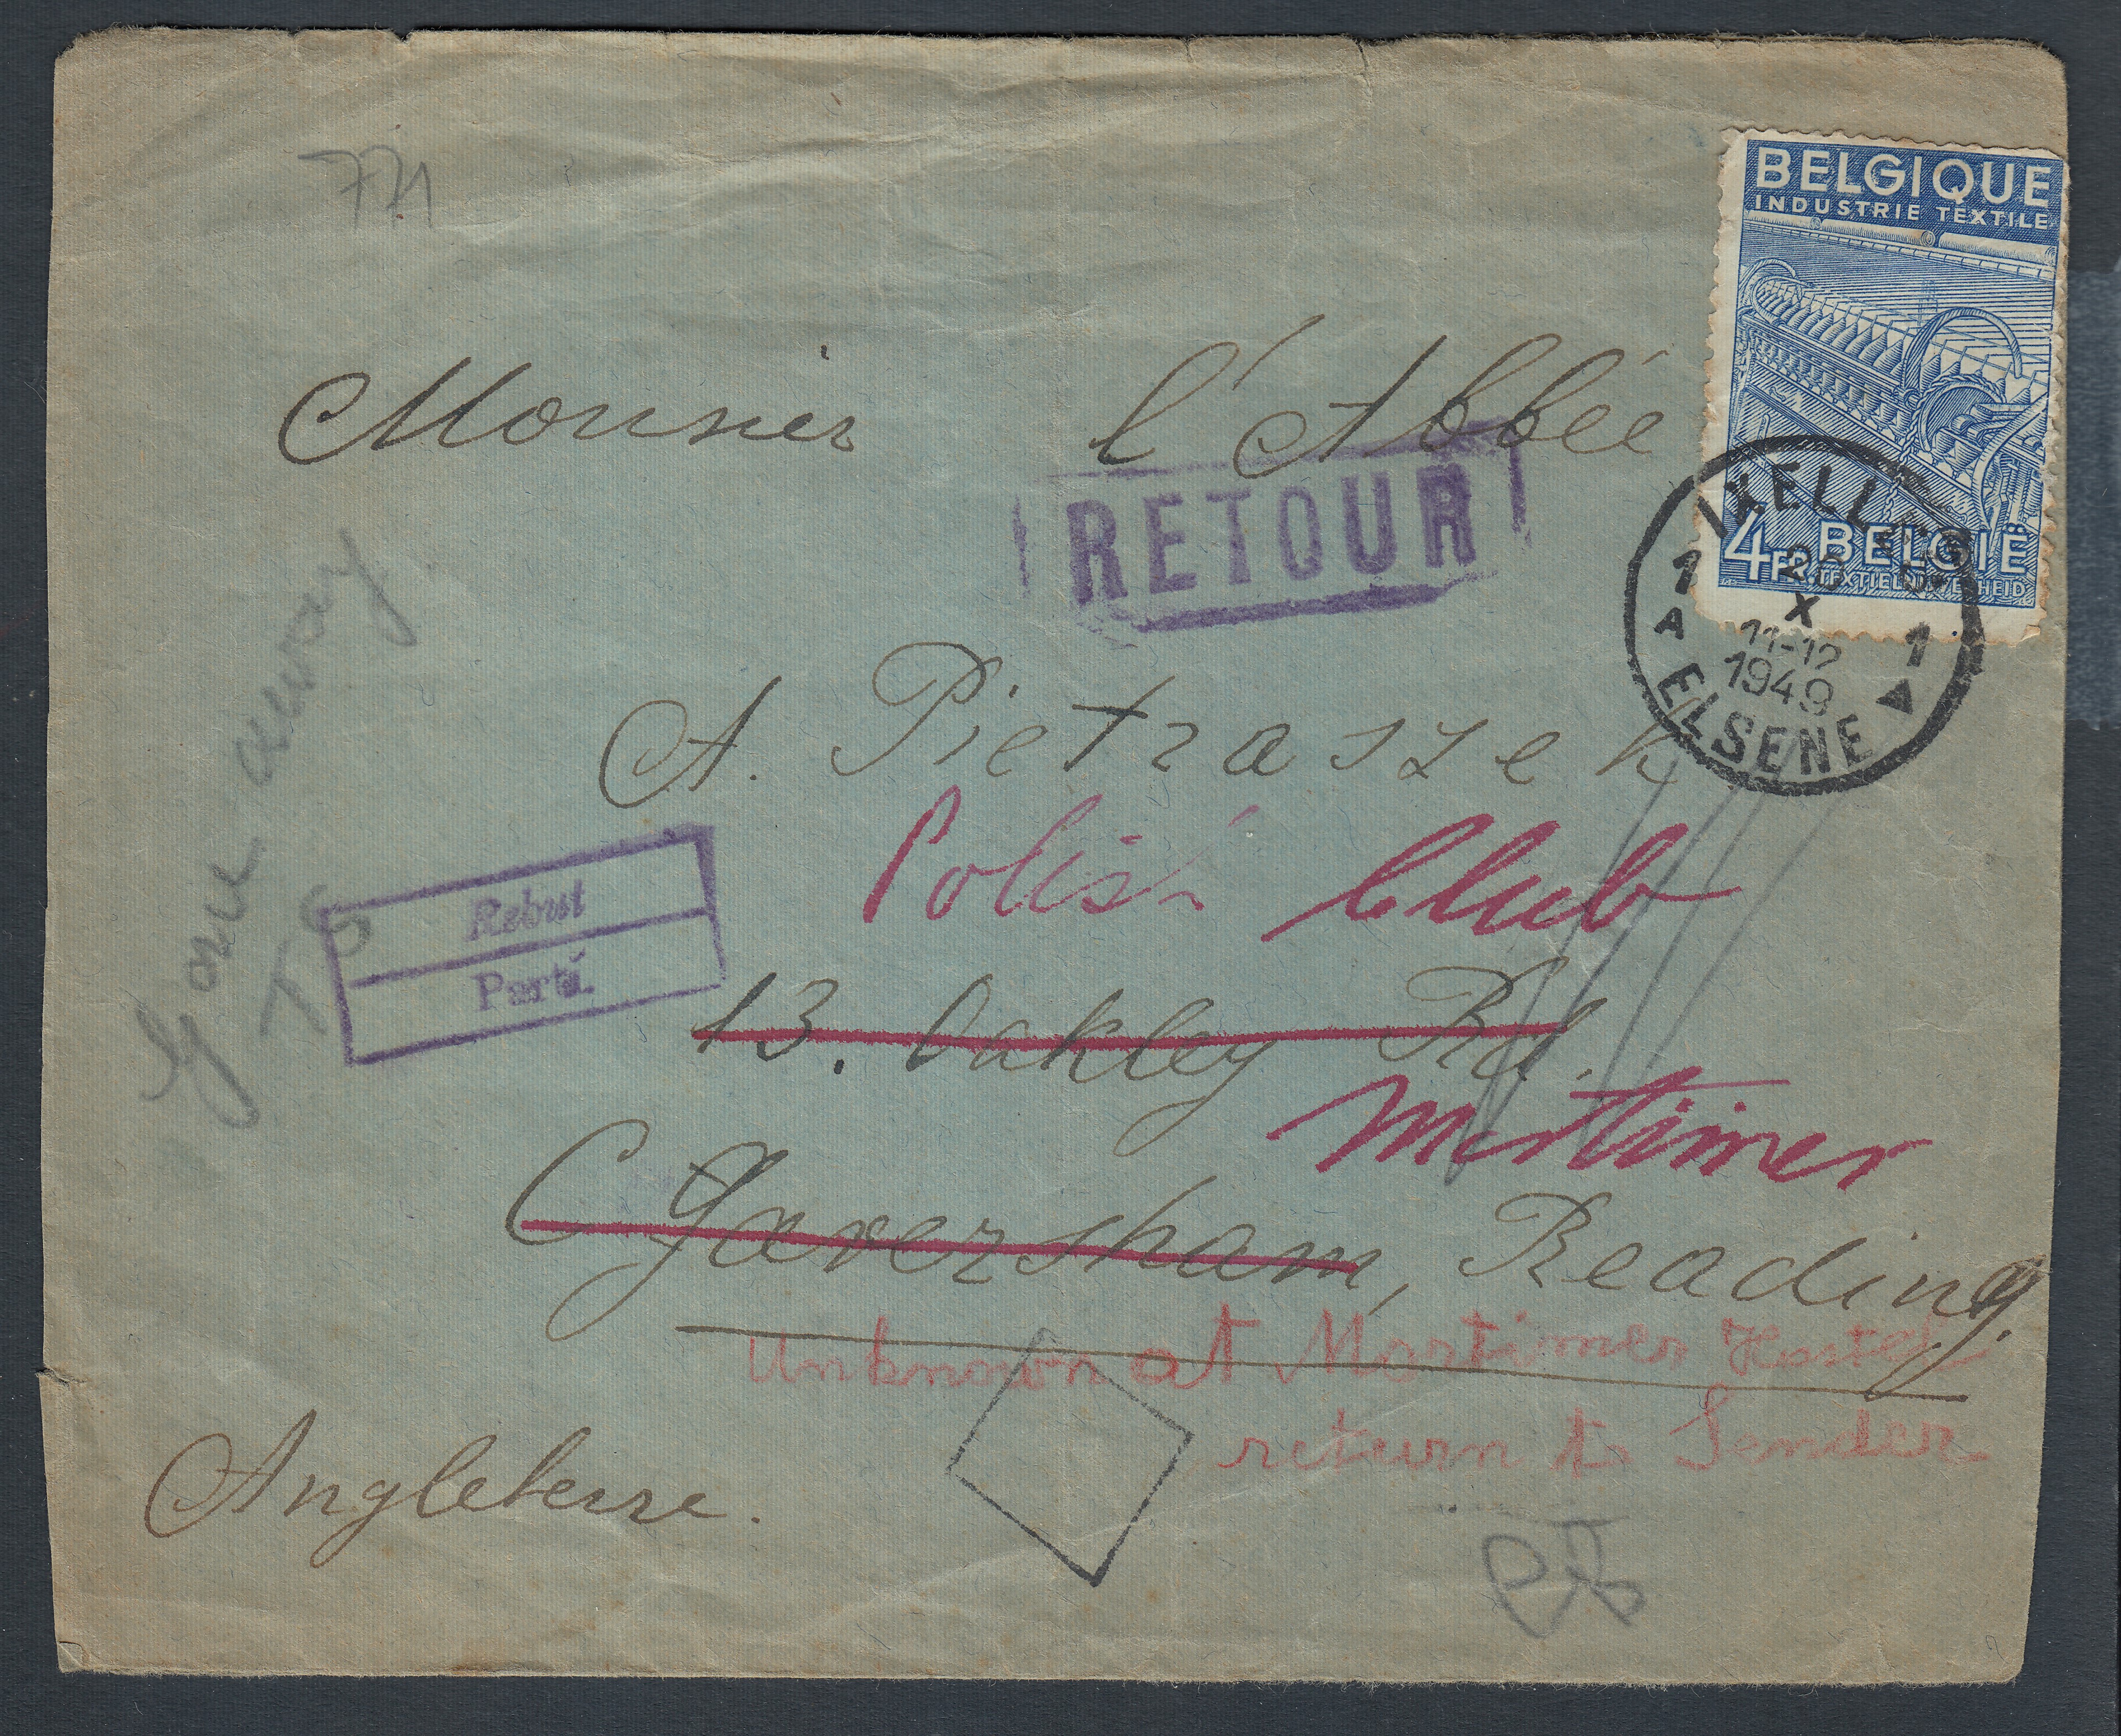 771
BELGIQUE
INDUSTRIE TEXTILE
4FR BELGIË
TEXTIELNIJVERHEID
Monsieur l'Abbé
RETOUR
IXELLES
1 1
X
11-12
1949
A
ELSENE
A. Pietraszek
Polish Club
Gone away
Rebut
Parti.
13. Oakley Rd.
Mortimer
Caversham, Reading.
Unknown at Mortimer Hostel
return to Sender
Angleterre.